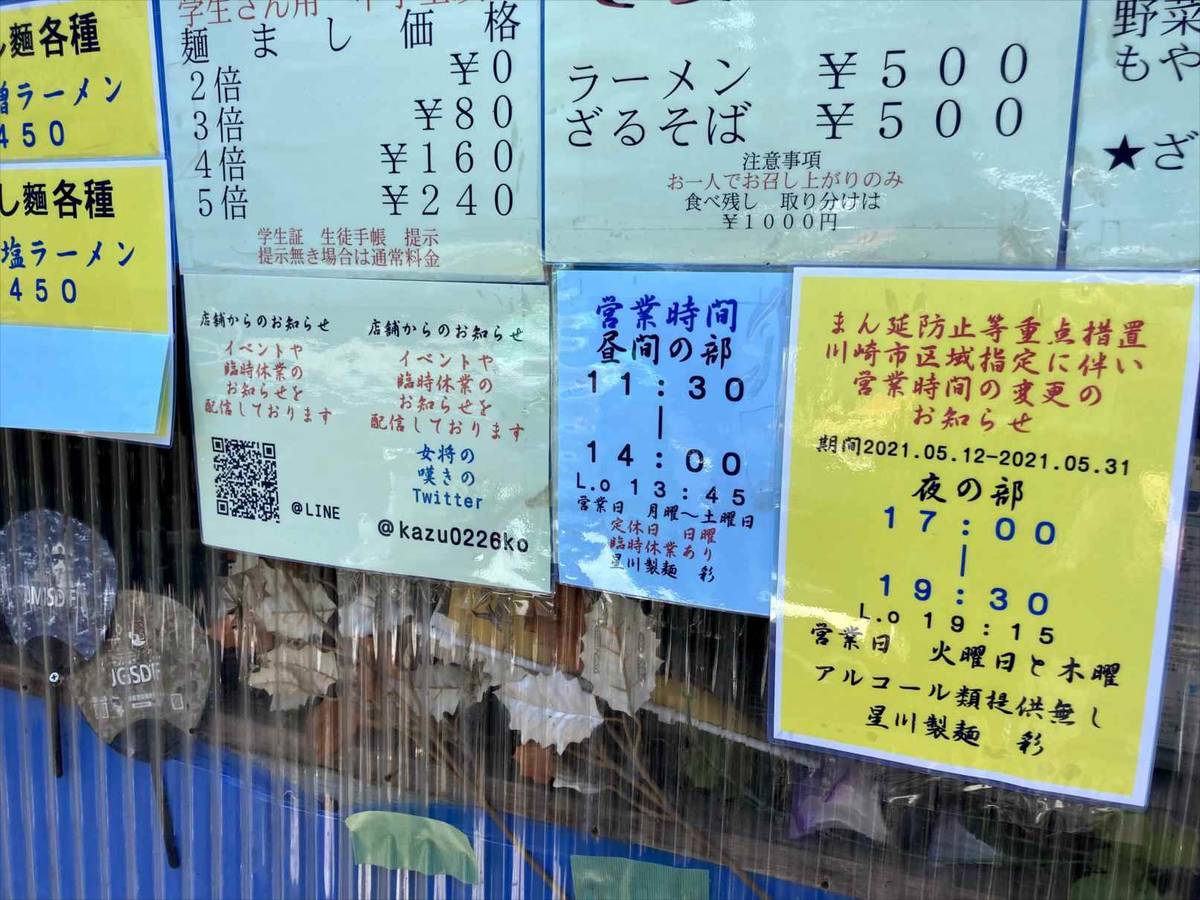 し麺各種
噌ラーメン
450
し麺各種
塩ラーメン
450
学生さん用
麺まし価格
2倍 ¥0
3倍 ¥80
4倍 ¥160
5倍 ¥240
学生証 生徒手帳 提示
提示無き場合は通常料金
ラーメン ¥500
ざるそば ¥500
注意事項
お一人でお召し上がりのみ
食べ残し 取り分けは
¥1000円
野菜
もや
★ざ
店舗からのお知らせ
イベントや
臨時休業の
お知らせを
配信しております
@LINE
店舗からのお知らせ
イベントや
臨時休業の
お知らせを
配信しております
女将の
嘆きの
Twitter
@kazu0226ko
営業時間
昼間の部
11:30
|
14:00
L.o 13:45
営業日 月曜~土曜日
定休日 日曜
臨時休業あり
星川製麺 彩
まん延防止等重点措置
川崎市区域指定に伴い
営業時間の変更の
お知らせ
期間2021.05.12-2021.05.31
夜の部
17:00
|
19:30
L.o 19:15
営業日 火曜日と木曜
アルコール類提供無し
星川製麺 彩